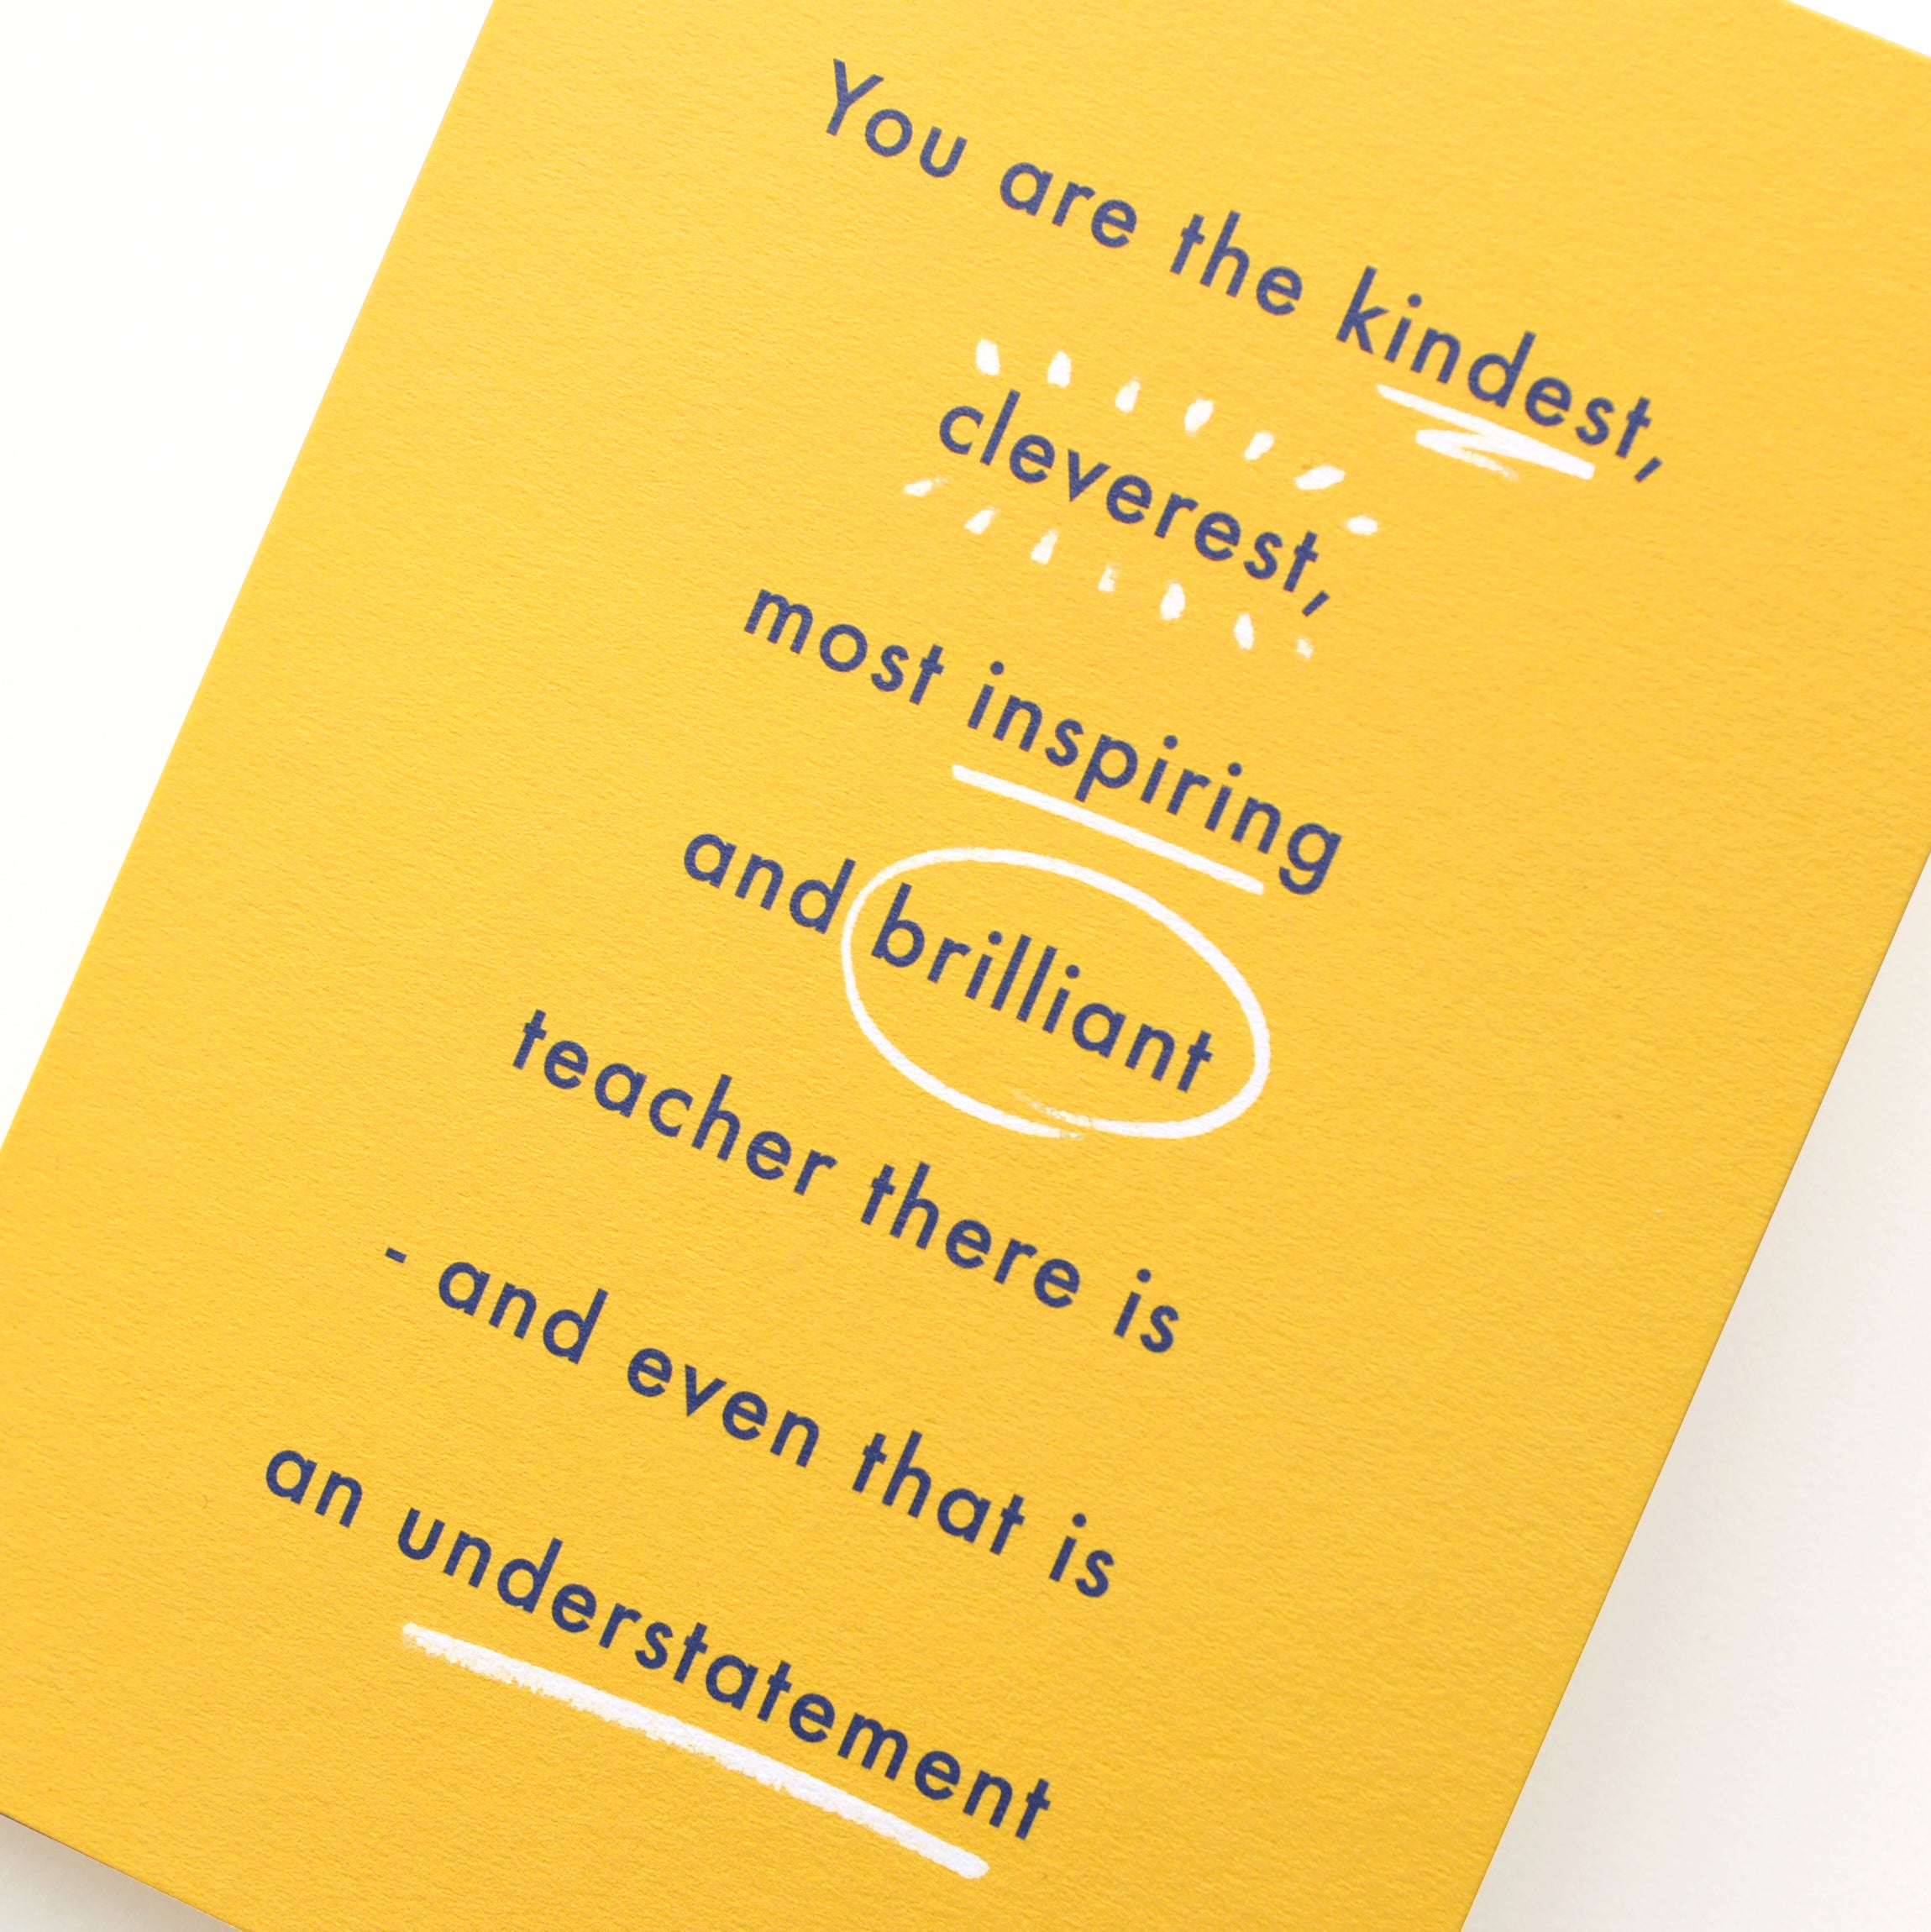 You are the kindest,
cleverest,
most inspiring
and brilliant
teacher there is
- and even that is
an understatement